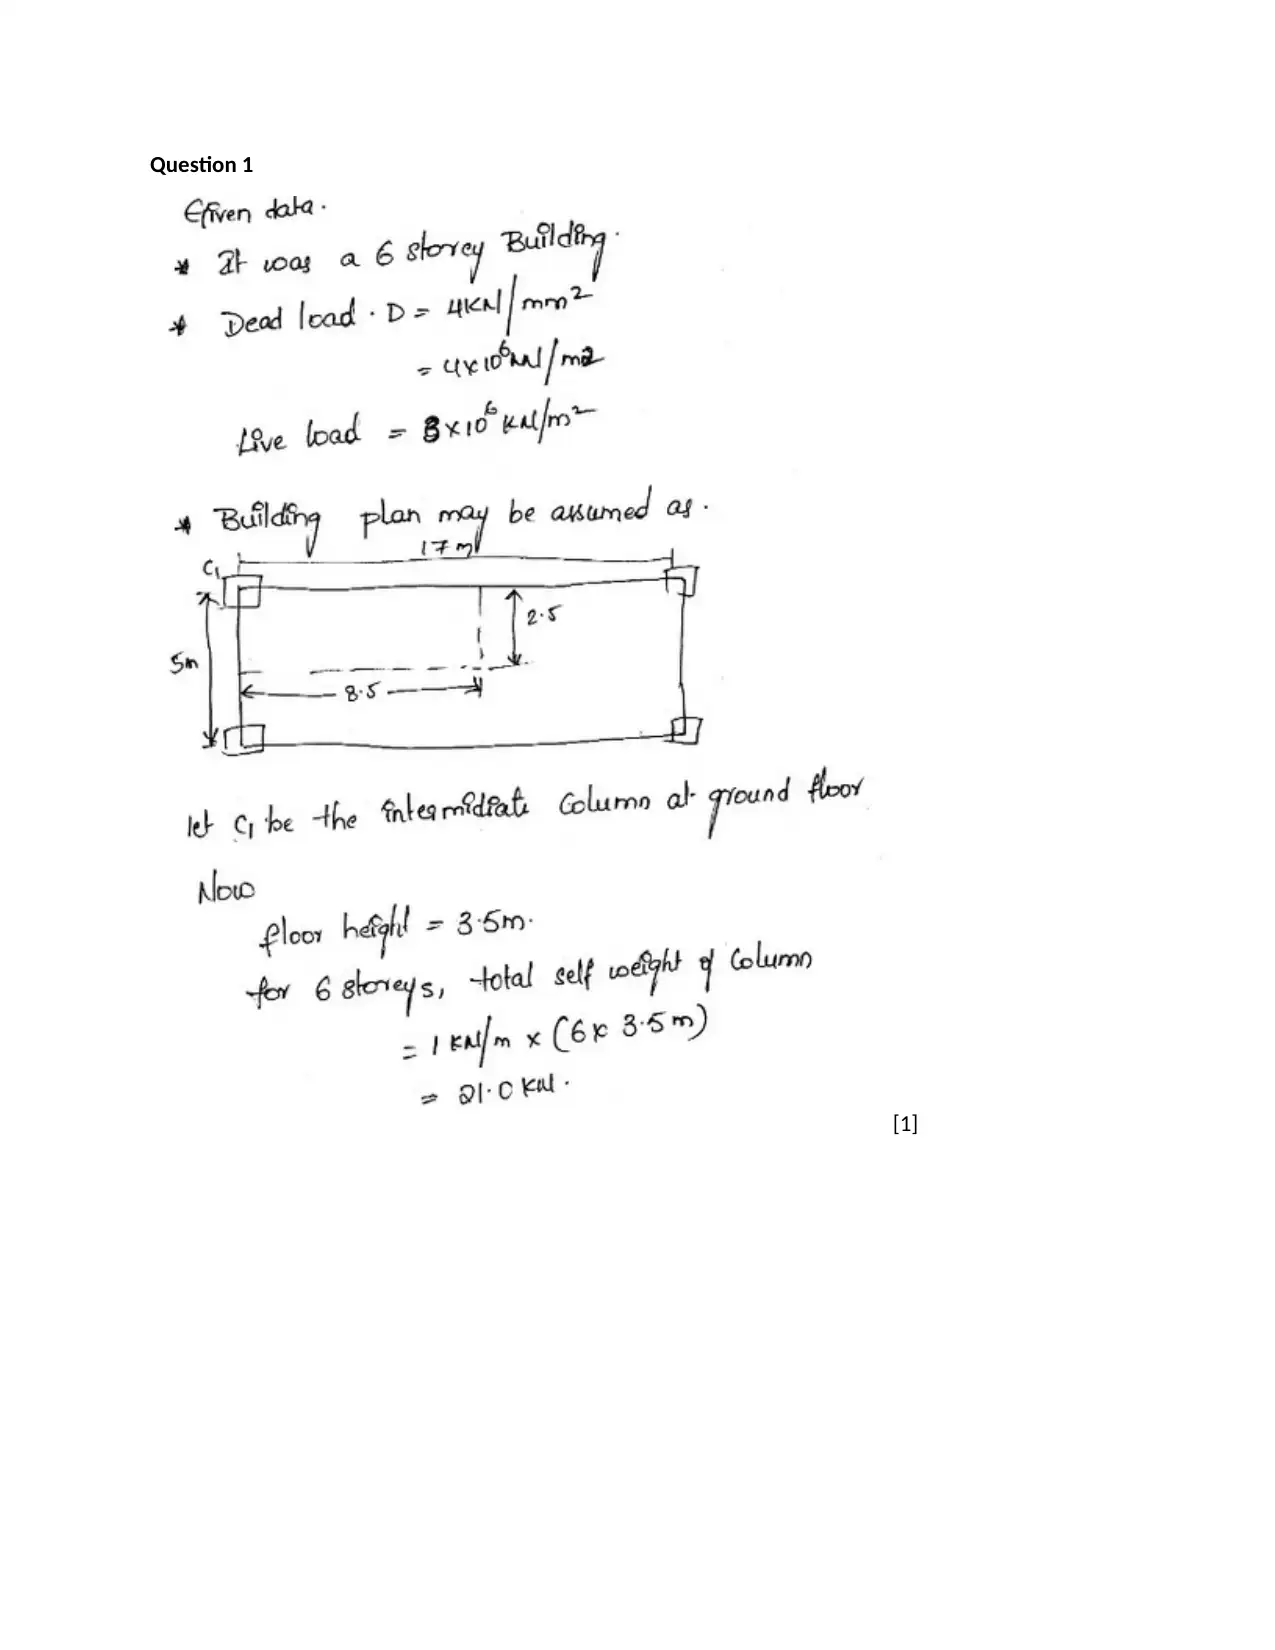 Question 1
Given data.
* It was a 6 storey Building.
* Dead load. D = 4KN/mm2
= 4x10^6 KN/m2
Live load = 3x10^6 KN/m2
* Building plan may be assumed as.
17 m
C1
2.5
5m
8.5
let C1 be the intermidiate Column at ground floor
Now
floor height = 3.5m.
for 6 storeys, total self weight of Column
= 1 KN/m x (6 x 3.5 m)
= 21.0 KN.
[1]